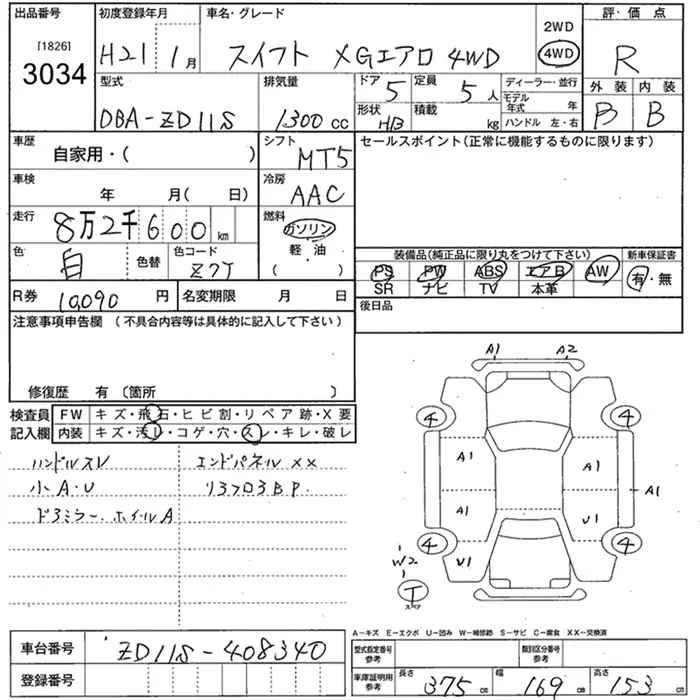 出品番号 初度登録年月 車名・グレード 評・価 点
[1826] 3034 H21 1月 スイフト XGエアロ 4WD 2WD 4WD R
型式 排気量 ドア 定員 ディーラー・並行 外装 内装
DBA-ZD11S 1300 cc 5 5人 モデル年式 年 B B
形状 HB 積載 kg ハンドル 左・右
車歴 シフト セールスポイント(正常に機能するものに限ります)
自家用・( ) MT5
車検 年 月( 日) 冷房 AAC
走行 8万2千600 km 燃料 ガソリン
軽・油
・
( )
色 白 色替 色コード Z7T
装備品(純正品に限り丸をつけて下さい) 新車保証書
PS PW ABS エアB AW 有・無
SR ナビ TV 本革
R券 10,090 円 名変期限 月 日 後日品
注意事項申告欄 (不具合内容等は具体的に記入して下さい)
修復歴 有 〔箇所 〕
検査員 FW キズ・飛石・ヒビ割・リペア跡・X要
記入欄 内装 キズ・汚レ・コゲ・穴・スレ・キレ・破レ
ハンドルスレ エンドパネルXX
小A・U リヨフロヨBP.
ドヨミラー、ホイルA
A1 A2
4 4
A1 A1
A1
A1 U1
4 4
W2 U1 U1
T
スペア
A-キズ E-エクボ U-凹み W-補修跡 S-サビ C-腐食 XX-交換済
車台番号 ZD11S-408340 型式指定番号 参考 類別区分番号 参考
登録番号 車庫証明用 参考 長さ 375 cm 幅 169 cm 高さ 153 cm